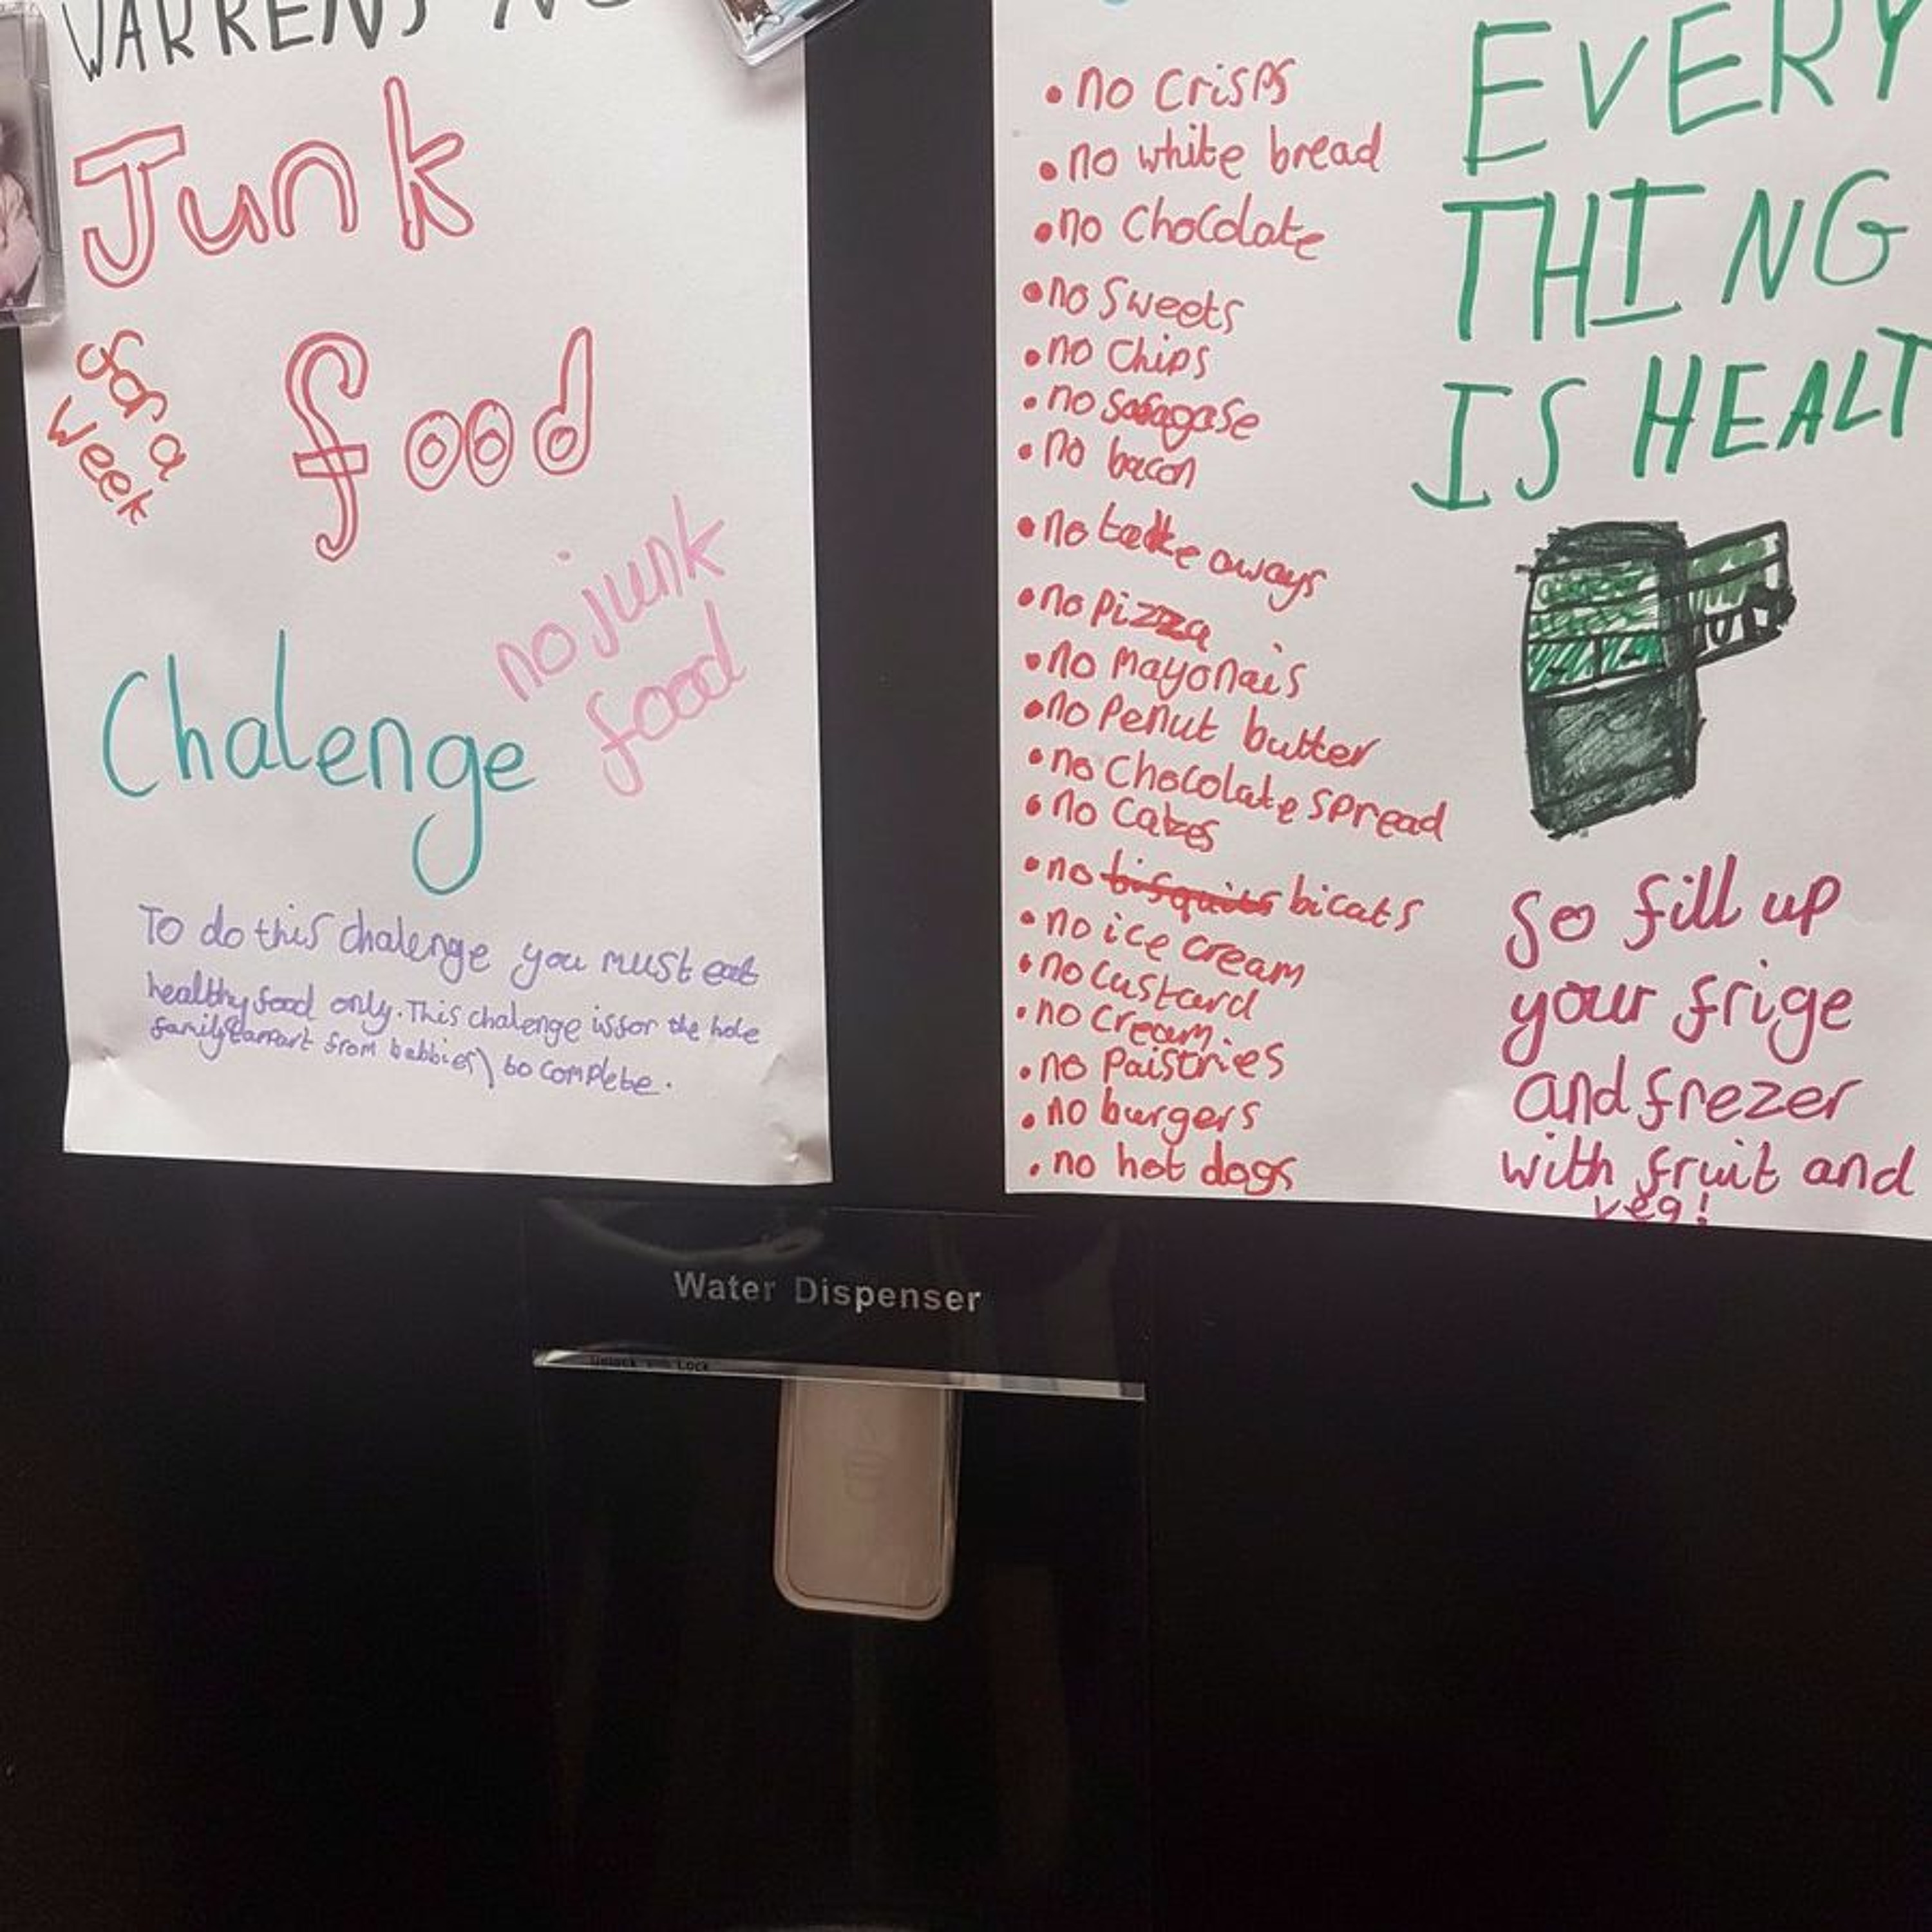 WARRENS NO
Junk
for a
week
food
no junk
food
Chalenge
To do this chalenge you must eat
healthy food only. This chalenge is for the hole
family(apart from babbies) to complete.
• no crisps
• no white bread
• no chocolate
• no sweets
• no chips
• no
• no bacon
• no take aways
• no pizza
• no mayonais
• no penut butter
• no chocolate spread
• no cakes
• no bisquits bicats
• no ice cream
• no custard
• no cream
• no paistries
• no burgers
• no hot dogs
EVERY
THING
IS HEALT
So fill up
your frige
and frezer
with fruit and
veg!
Water Dispenser
Unlock Lock